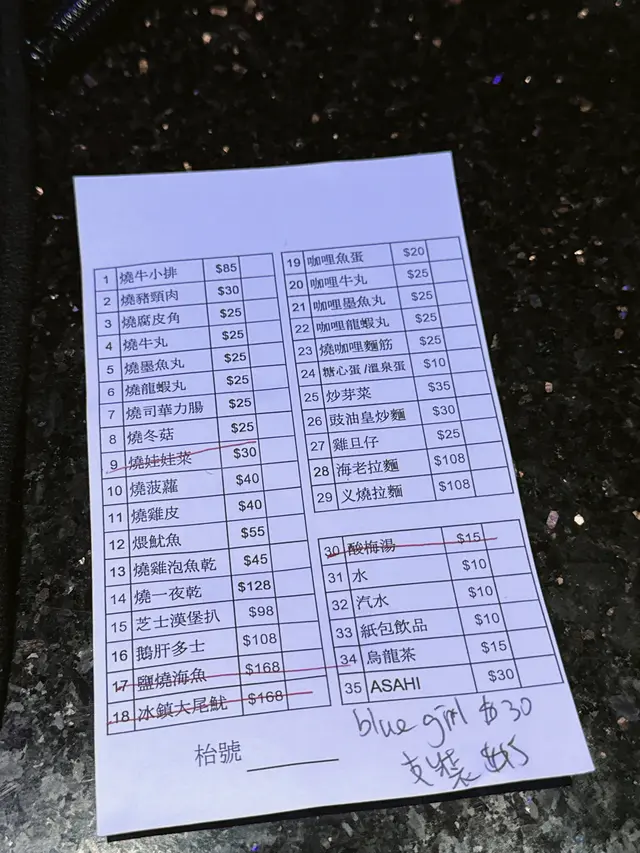 1 燒牛小排 $85
2 燒豬頸肉 $30
3 燒腐皮角 $25
4 燒牛丸 $25
5 燒墨魚丸 $25
6 燒龍蝦丸 $25
7 燒司華力腸 $25
8 燒冬菇 $25
9 燒娃娃菜 $30
10 燒菠蘿 $40
11 燒雞皮 $40
12 煨魷魚 $55
13 燒雞泡魚乾 $45
14 燒一夜乾 $128
15 芝士漢堡扒 $98
16 鵝肝多士 $108
17 鹽燒海魚 $168
18 冰鎮大尾魷 $168
19 咖哩魚蛋 $20
20 咖哩牛丸 $25
21 咖哩墨魚丸 $25
22 咖哩龍蝦丸 $25
23 燒咖哩麵筋 $25
24 糖心蛋/溫泉蛋 $10
25 炒芽菜 $35
26 豉油皇炒麵 $30
27 雞旦仔 $25
28 海老拉麵 $108
29 义燒拉麵 $108
30 酸梅湯 $15
31 水 $10
32 汽水 $10
33 紙包飲品 $10
34 烏龍茶 $15
35 ASAHI $30
枱號
blue girl $30
支裝